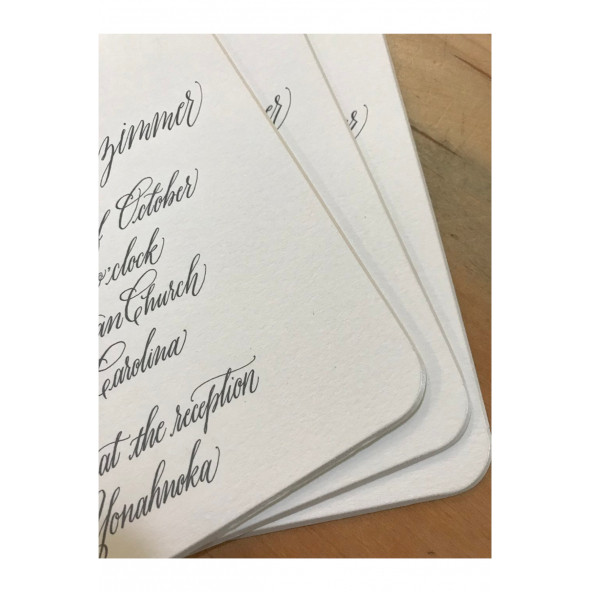 zimmer
of October
o'clock
an Church
Carolina
at the reception
Yonahnoka
er
er